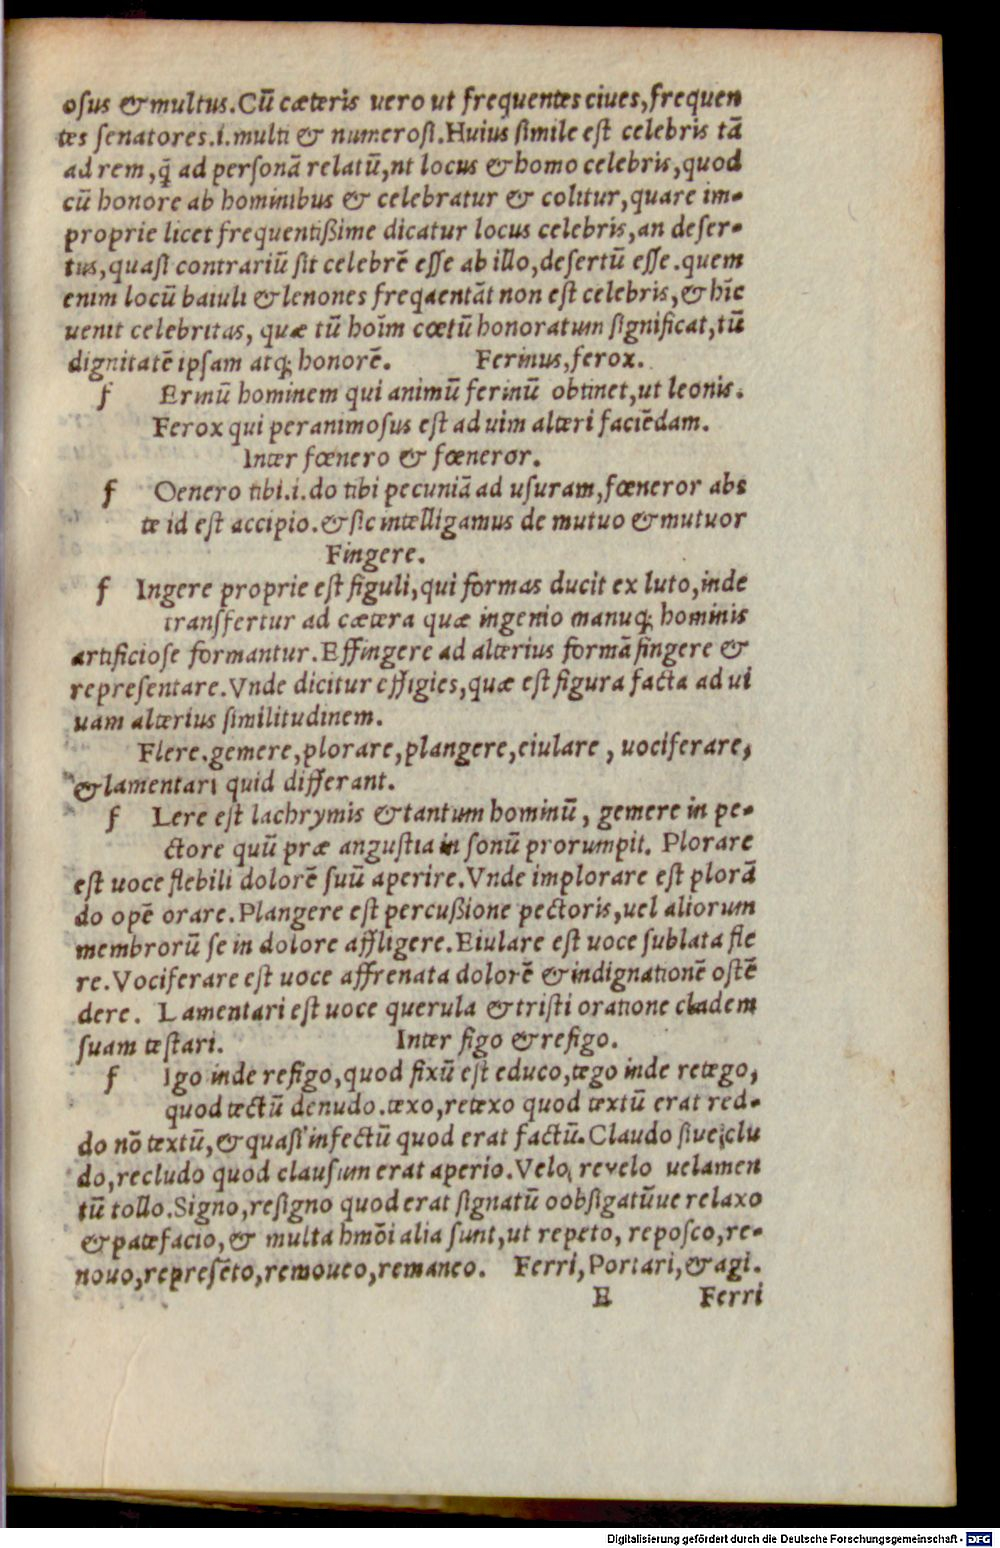 osus & multus. Cū cæteris vero ut frequentes ciues, frequen
tes senatores .i. multi & numerosi. Huius simile est celebris tā
ad rem, q̄ ad personā relatū, nt locus & homo celebris, quod
cū honore ab hominibus & celebratur & colitur, quare im-
proprie licet frequentißime dicatur locus celebris, an deser-
tus, quasi contrariū sit celebrē esse ab illo, desertū esse. quem
enim locū baiuli & lenones freqaentāt non est celebris, & hīc
uenit celebritas, quæ tū hoīm cœtū honoratum significat, tū
dignitatē ipsam atq; honorē. Ferinus, ferox.
f Erinū hominem qui animū ferinū obtinet, ut leonis.
Ferox qui peranimosus est ad uim alteri faciēdam.
Inter fœnero & fœneror.
f Oenero tibi .i. do tibi pecuniā ad usuram, fœneror abs
te id est accipio. & sic intelligamus de mutuo & mutuor
Fingere.
f Ingere proprie est figuli, qui formas ducit ex luto, inde
transfertur ad cætera quæ ingenio manuq; hominis
artificiose formantur. Effingere ad alterius formā fingere &
representare. Vnde dicitur effigies, quæ est figura facta ad ui
uam alterius similitudinem.
Flere. gemere, plorare, plangere, eiulare, uociferare,
& lamentari quid differant.
f Lere est lachrymis & tantum hominū, gemere in pe-
ctore quū præ angustia in sonū prorumpit. Plorare
est uoce flebili dolorē suū aperire. Vnde implorare est plorā
do opē orare. Plangere est percußione pectoris, uel aliorum
membrorū se in dolore affligere. Eiulare est uoce sublata fle
re. Vociferare est uoce affrenata dolorē & indignationē ostē
dere. Lamentari est uoce querula & tristi oratione cladem
suam testari. Inter figo & refigo.
f Igo inde refigo, quod fixū est educo, tego inde retego,
quod tectū denudo. texo, retexo quod textū erat red-
do nō textū, & quasi infectū quod erat factū. Claudo siue clu
do, recludo quod clausum erat aperio. Velo, revelo uelamen
tū tollo. Signo, resigno quod erat signatū oobsigatūue relaxo
& patefacio, & multa hmōi alia sunt, ut repeto, reposco, re-
nouo, represēto, remoueo, remaneo. Ferri, Portari, & agi.
E Ferri
Digitalisierung gefördert durch die Deutsche Forschungsgemeinschaft - DFG